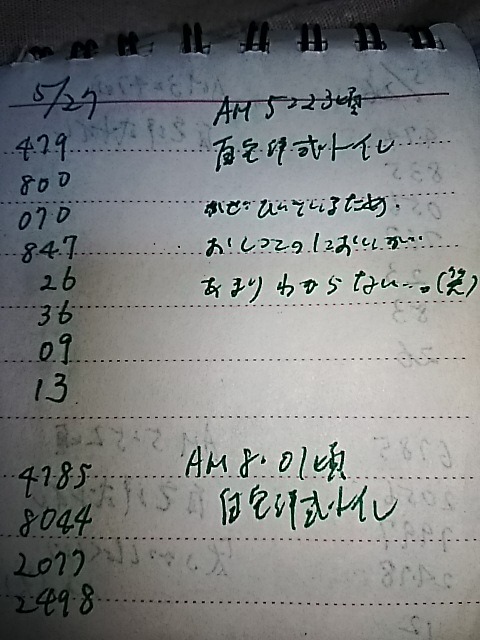 5/27
AM 5:23頃
479
自宅洋式トイレ
800
070
かぜひいているため、
847
おしっこのにおいが…
26
あまりわからない…。(笑)
36
09
13
4785
AM 8:01頃
8044
自宅洋式トイレ
2077
2498